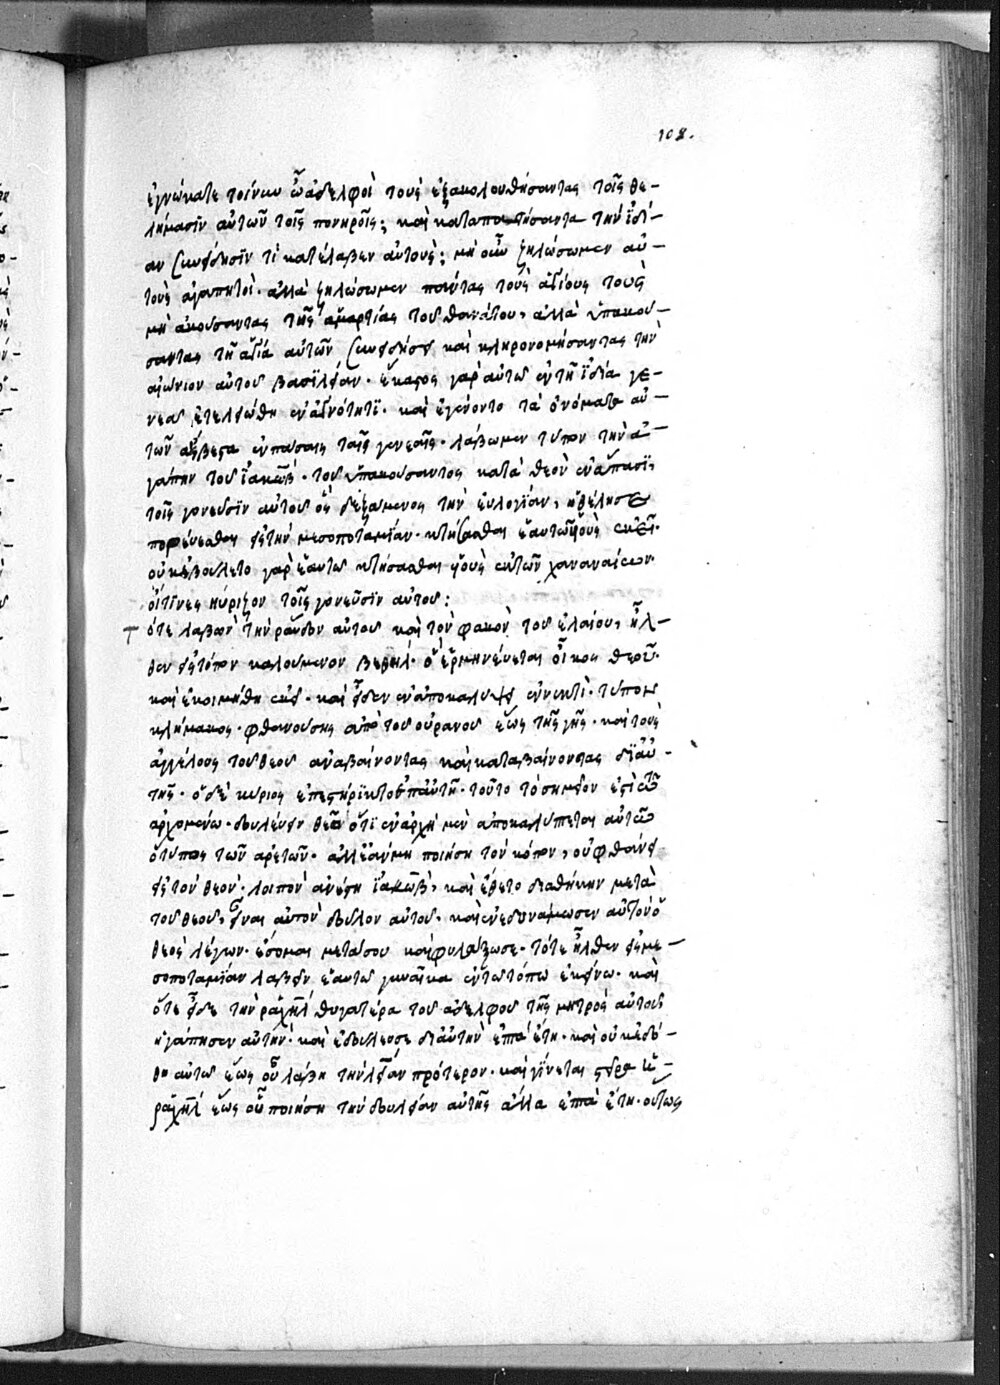 108.
ἐγνώκατε τοίνυν ὦ ἀδελφοὶ τοὺς ἐξακολουθήσαντας τοῖς θε-
λήμασϊν αὐτῶν τοῖς πονηροῖς; καὶ καταπατήσαντα τὴν ἰδί-
αν συνείδησϊν τί κατέλαβεν αὐτούς; μὴ οὖν ζηλώσωμεν αὐ-
τοὺς ἀγαπητοὶ· ἀλλὰ ζηλώσωμεν πάντας τοὺς ἁγίους τοὺς
μὴ ἀκούσαντας τῆς ἁμαρτίας τοῦ θανάτου, ἀλλὰ ὑπακού-
σαντας τῇ ἁγία αὐτῶν συνειδήσει καὶ κληρονομήσαντας τὴν
αἰώνιον αὐτοῦ βασϊλείαν· ἕκαστος γὰρ αὐτῶ ἐν τῇ ἰδία γε-
νεᾶ ἐτελειώθη ἐν ἁγνότητϊ· καὶ ἐγένοντο τὰ ὀνόματα αὐ-
τῶν ἄσβεστα ἐν πάσαις ταῖς γενεαῖς· λάβωμεν τύπον τὴν ἀ-
γάπην τοῦ ἰακώβ· τοῦ ὑπακούσαντος κατὰ θεὸν ἐν ἅπασϊ
τοῖς γονεῦσϊν αὐτοῦ ὃς δεξάμενος τὴν εὐλογίαν, ἠθέλησε
πορεύεσθαι εἰς τὴν μεσοποταμίαν· κτήσασθαι ἑαυτῶ υἱοὺς ἐκεῖ·
οὐκ ἐβούλετο γὰρ ἑαυτῶ κτήσασθαι υἱοὺς ἐκ τῶν χαναναίων·
οἵτϊνες ἤριζον τοῖς γονεῦσϊν αὐτοῦ:
ὅτε λαβὼν τὴν ράβδον αὐτοῦ καὶ τὸν φακὸν τοῦ ἐλαίου, ἦλ-
θεν εἰς τόπον καλούμενον βεθήλ· ὃ ἑρμηνεύεται οἶκος θεοῦ·
καὶ ἐκοιμήθη ἐκεῖ· καὶ εἶδεν ἐν ἀποκαλύψει ἐν νυκτὶ· τύπον
κλήμακος· φθανούσης ἀπὸ τοῦ οὐρανοῦ ἕως τῆς γῆς· καὶ τοὺς
ἀγγέλους τοῦ θεοῦ ἀναβαίνοντας καὶ καταβαίνοντας δϊ αὐ-
τῆς· ὁ δὲ κύριος ἐπεστήρϊκτο ἐπ αὐτῆ· τοῦτο τὸ σημεῖον ἐστὶ τῶ
ἀρχομένω· δουλεύειν θεῶ ὅτϊ ἐν ἀρχῆ μὲν ἀποκαλύπτεται αὐτῶ
ὁ τύπος τῶν ἀρετῶν· ἀλλ ἐὰν μὴ ποιήση τὸν κόπον, οὐ φθάνει
εἰς τὸν θεὸν· λοιπὸν ἀνέστη ἰακὼβ, καὶ ἔθετο διαθήκην μετὰ
τοῦ θεοῦ, εἶναι αὐτὸν δοῦλον αὐτοῦ· καὶ ἐνεδυνάμωσεν αὐτὸν ὁ
θεὸς λέγων· ἔσομαι μετὰ σοῦ καὶ φυλάξω σε· τότε ἦλθεν εἰς με-
σοποταμίαν λαβεῖν ἑαυτῶ γυναῖκα ἐν τῶ τόπω ἐκείνω· καὶ
ὅτε εἶδε τὴν ραχὴλ θυγατέρα τοῦ ἀδελφοῦ τῆς μητρὸς αὐτοῦ
ἠγάπησεν αὐτὴν· καὶ ἐδούλευσε δι αὐτὴν ἑπτὰ ἔτη· καὶ οὐκ ἐδό-
θη αὐτῶ ἕως οὗ λάβη τὴν λείαν πρότερον· καὶ γίνεται στεῖρα ἡ
ραχὴλ ἕως οὗ ποιήση τὴν δουλείαν αὐτῆς ἄλλα ἑπτὰ ἔτη· οὕτως